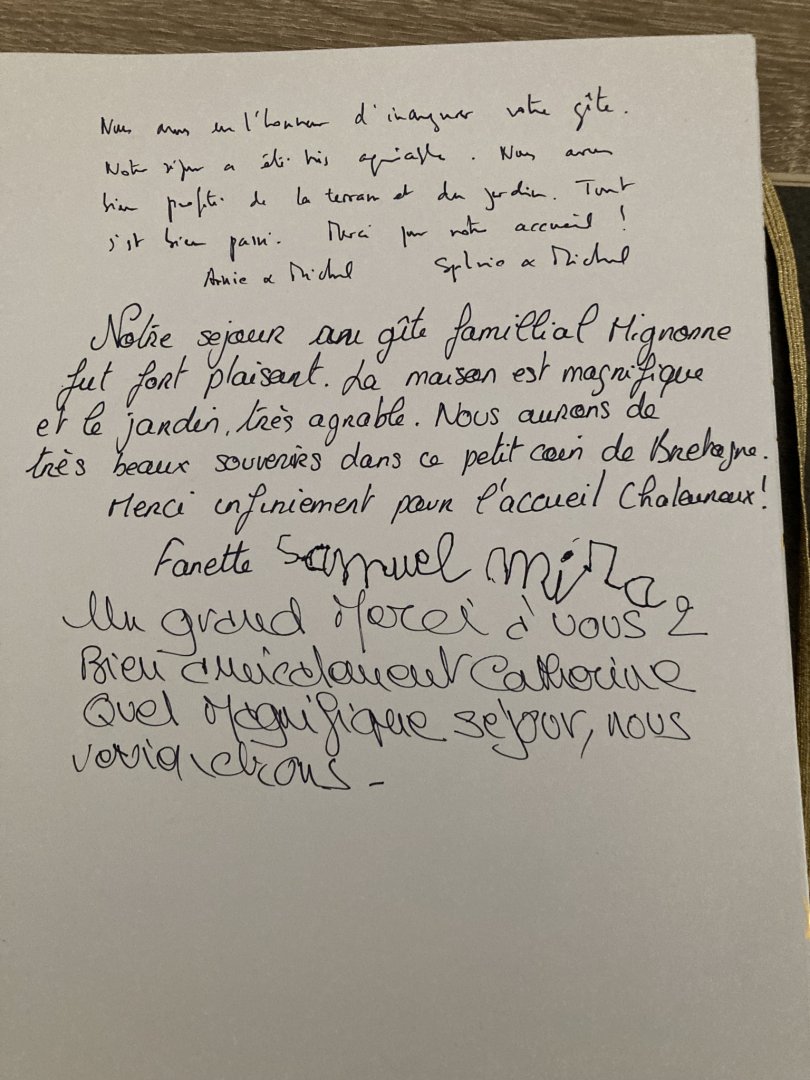 Nous avons eu l'honneur d'inaugurer votre gîte.
Notre séjour a été très agréable. Nous avons
bien profité de la terrasse et du jardin. Tout
s'est bien passé. Merci pour votre accueil !
Annie & Michel Sylvie & Michel
Notre sejour au gîte famillial Mignonne
fut fort plaisant. La maison est magnifique
et le jardin, très agrable. Nous aurons de
très beaux souvenirs dans ce petit coin de Bretagne.
Merci infiniement pour l'accueil Chaleureux!
Fanette Samuel Mina
Un grand Merci à vous 2
Bien amicalement Catherine
Quel Magnifique séjour, nous
-